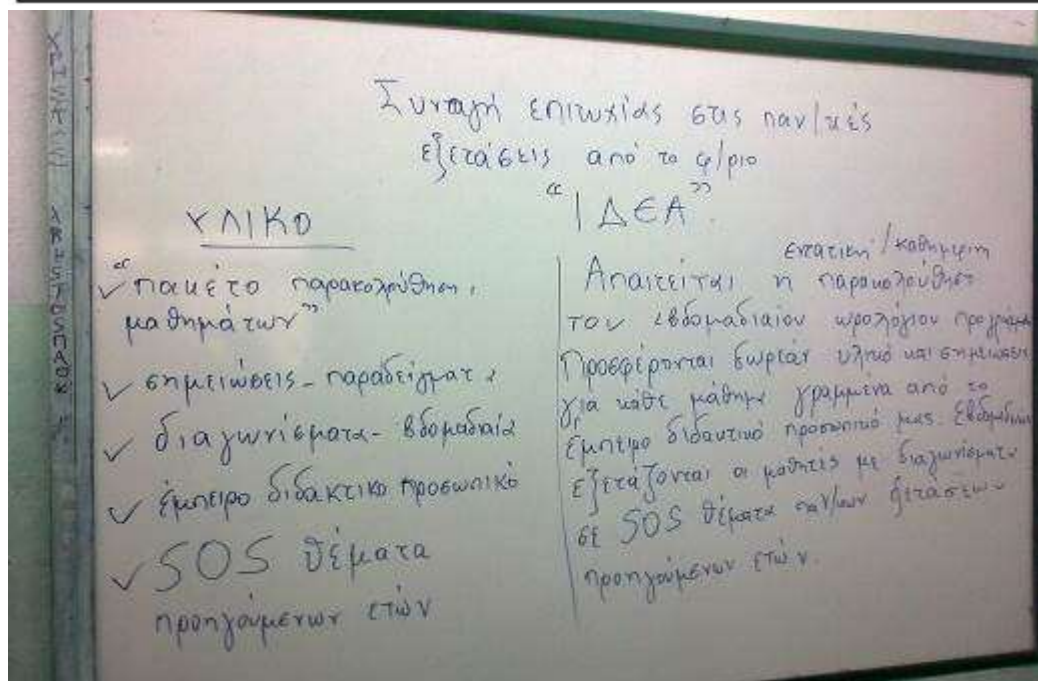 Συνταγή επιτυχίας στις παν/κές
εξετάσεις από το φ/ριο
"ΙΔΕΑ".
ΥΛΙΚΟ
✓ "πακέτο παρακολούθηση,
μαθημάτων"
✓ σημειώσεις - παραδείγματα
✓ διαγωνίσματα - βδομαδιαία
✓ έμπειρο διδακτικο προσωπικό
✓ SOS θέματα
προηγούμενων ετών
εντατική / καθημερινη
Απαιτείται η παρακολούθηση
του εβδομαδιαίου ωρολόγιου προγράμμα
Προσφέρονται δωρεάν υλικό και σημειώσεις
για κάθε μάθημα γραμμένα από το
έμπειρο διδακτικό προσωπικό μας.
εξετάζονται οι μαθητές με διαγωνίσματα
σε SOS θέματα παν/κων εξετάσεων
προηγούμενων ετών.